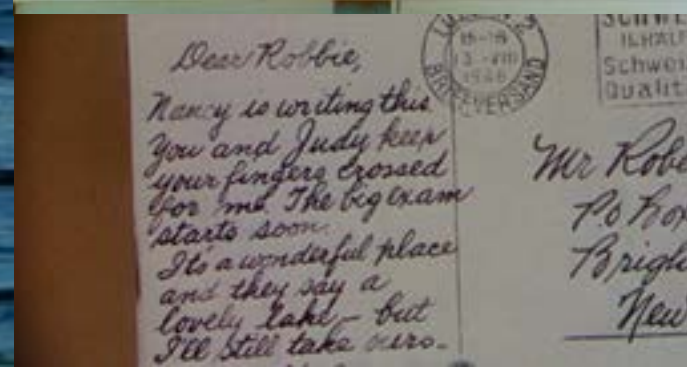 Dear Robbie,
Nancy is writing this
You and Judy keep
your fingers crossed
for me. The big exam
starts soon.
Its a wonderful place
and they say a
lovely lake - but
I'll still take ours.
BRIEFVERSAND
SCHWE
Schwei
Qualit
Mr Robe
P.O Box
Brigh
New